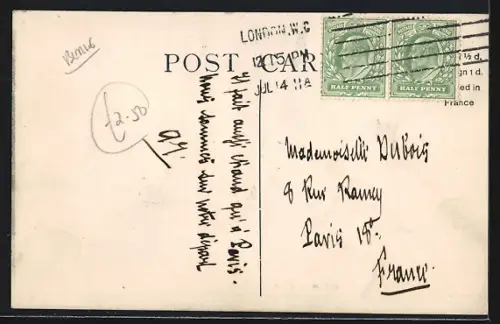 LONDON. W.C
12.15 PM
JUL 14 11A
POST CAR
HALF PENNY
HALF PENNY
½ d.
gn 1 d.
ed in
France
£2-50
Il fait aussi chaud qu'à Paris.
Nous sommes sur notre départ
Mademoiselle Dubois
8 Rue Ramey
Paris 18e
France